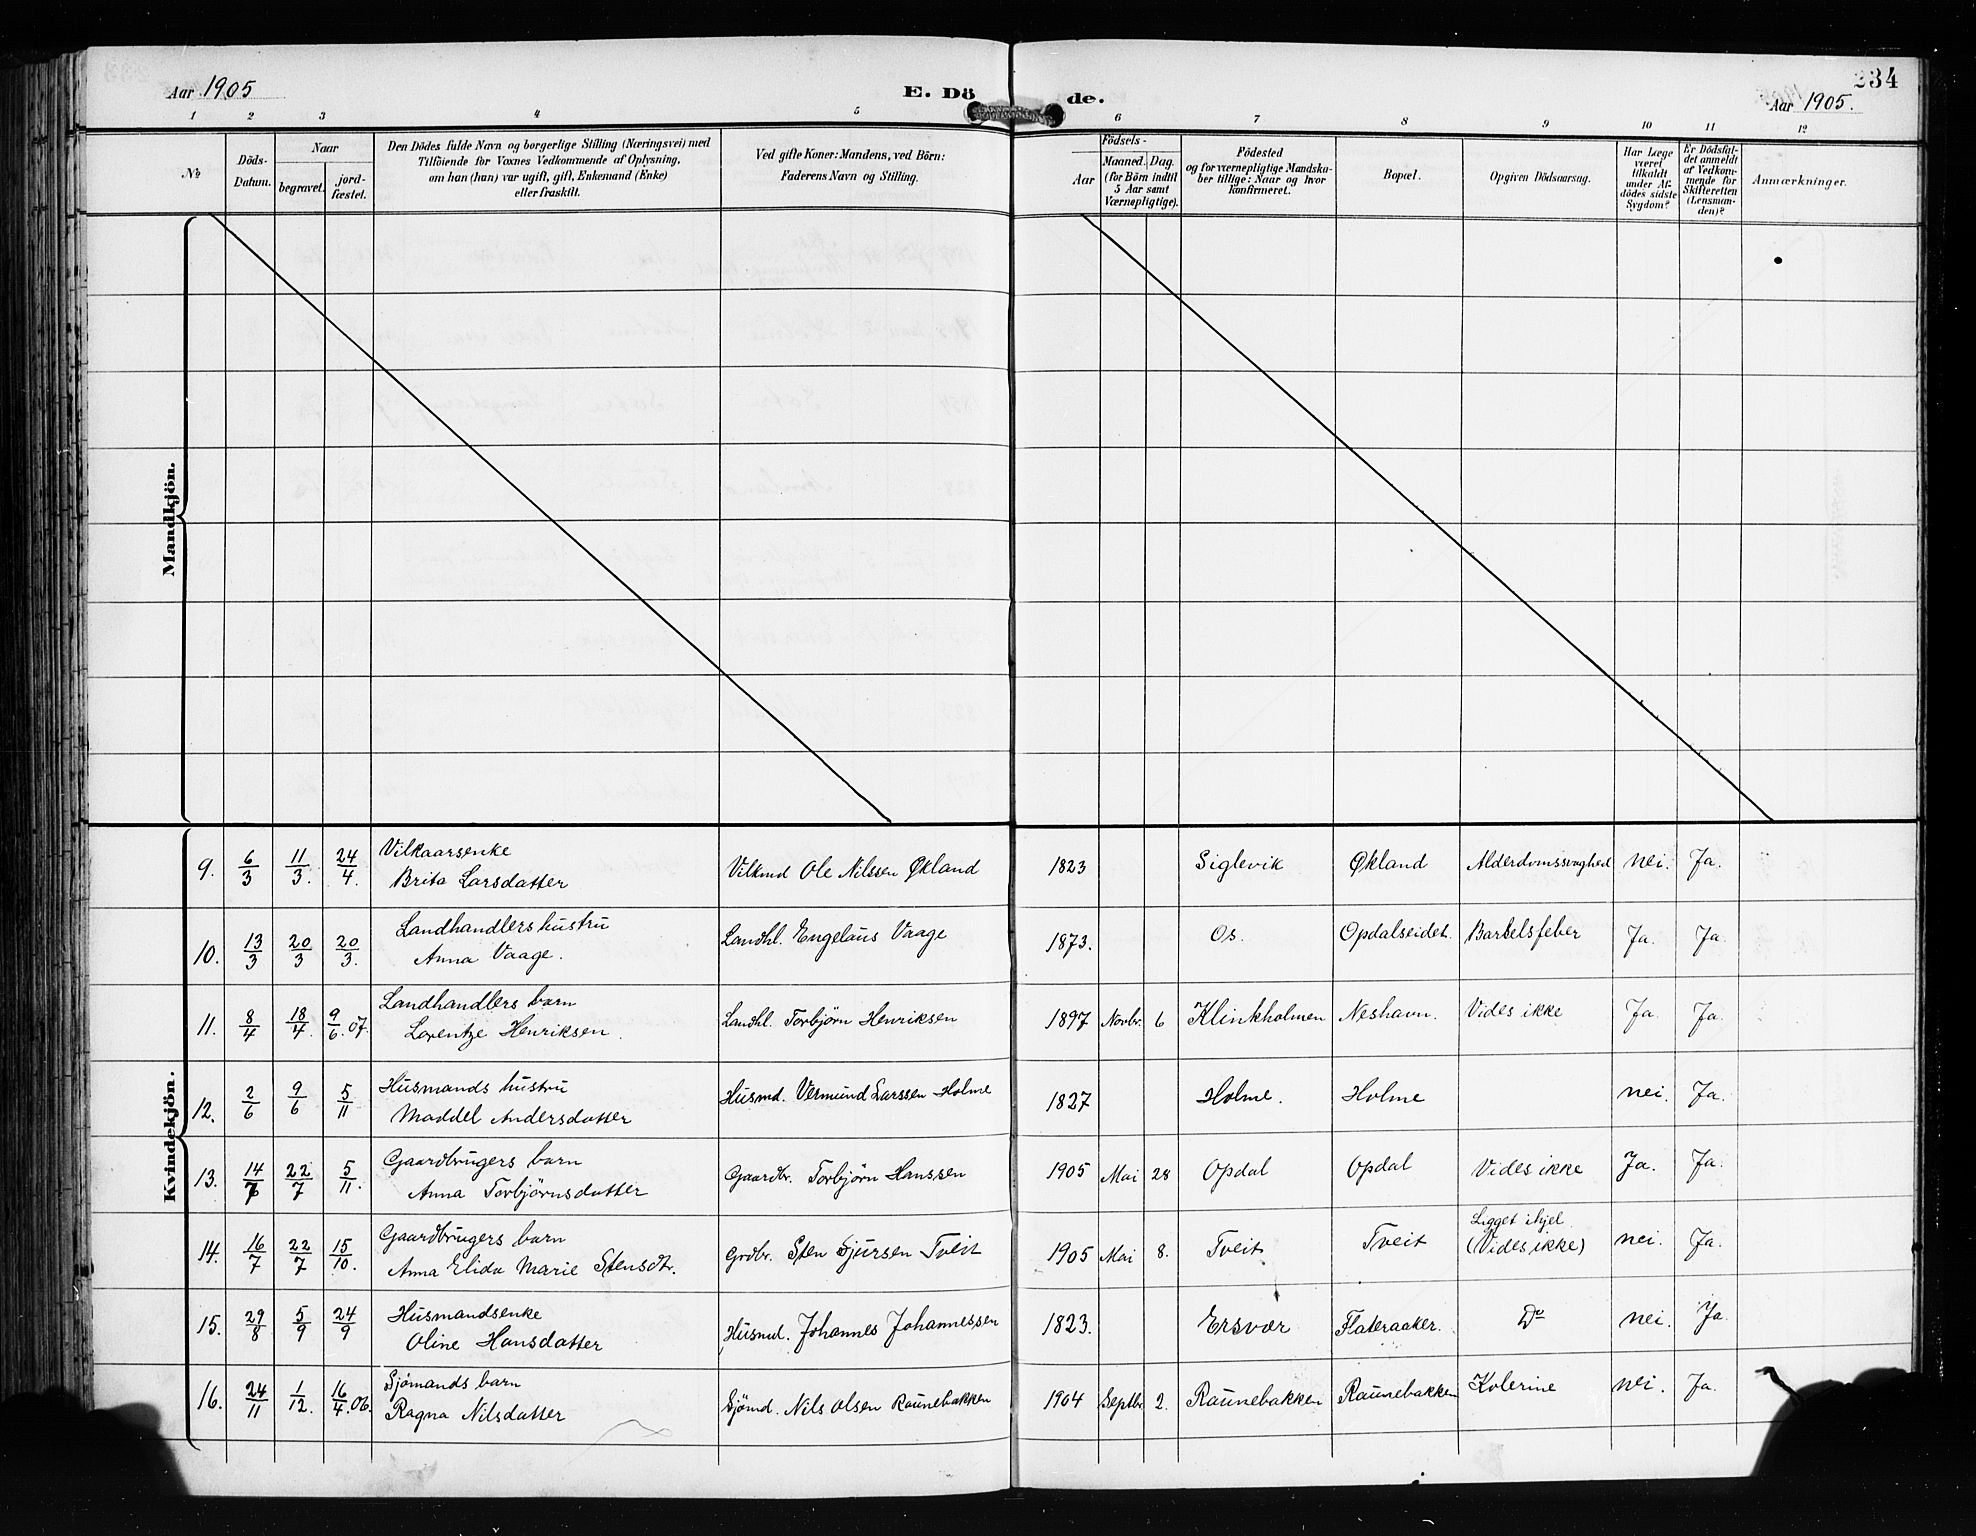 Aar 1905
E. Dö
de.
234
Aar 1905.
1 2 3 4 5 6 7 8 9 10 11 12
No
Döds-
Datum.
Naar
begravet.
jord-
fæstet.
Den Dödes fulde Navn og borgerlige Stilling (Næringsvei) med
Tilföiende for Voxnes Vedkommende af Oplysning,
om han (hun) var ugift, gift, Enkemand (Enke)
eller fraskilt.
Ved gifte Koner: Mandens, ved Börn:
Faderens Navn og Stilling.
Födsels-
Aar
Maaned. Dag.
(for Börn indtil
5 Aar samt
Værnepligtige).
Födested
og for værnepligtige Mandska-
ber tillige: Naar og hvor
konfirmeret.
Bopæl.
Opgiven Dödsaarsag.
Har Læge
været
tilkaldt
under Af-
dödes sidste
Sygdom?
Er Dödsfal-
det anmeldt
af Vedkom-
mende for
Skifteretten
(Lensman-
den)?
Anmærkninger.
Mandkjön.
Kvindekjön.
9. 6/3 11/3. 24/4. Vilkaarsenke
Brita Larsdatter
Vilkmd Ole Nilssen Økland 1823 Siglevik Økland Alderdomssvaghed nei. Ja.
10. 13/3 20/3 20/3. Landhandlers hustru
Anna Vaage.
Landhl. Engelaus Vaage 1873. Os. Opdalseidet. Barselsfeber Ja. Ja.
11. 8/4 18/4. 9/6.07. Landhandlers barn
Lorentze Henriksen.
Landhl. Torbjörn Henriksen 1897 Novbr. 6 Klinkholmen Neshavn. Vides ikke Ja. Ja.
12. 2/6 9/6 5/11 Husmands hustru
Maddel Andersdatter
Husmd. Vermund Larssen Holme 1827 Holme. Holme nei. Ja.
13. 14/7 22/7 5/11. Gaardbrugers barn
Anna Torbjörnsdatter
Gaardbr. Torbjörn Hanssen 1905 Mai 28 Opdal Opdal Vides ikke Ja. Ja.
14. 16/7 22/7 15/10. Gaardbrugers barn
Anna Elida Marie Stensdtr.
Grdbr. Sten Sjursen Tveit 1905 Mai 8. Tveit Tveit Ligget ihjel
(Vides ikke) nei. Ja.
15. 29/8 5/9 24/9 Husmandsenke
Oline Hansdatter
Husmd. Johannes Johannessen 1823. Ersvær Flateraaker. Do nei. Ja.
16. 24/11 1/12. 16/4.06. Sjömands barn
Ragna Nilsdatter
Sjömd. Nils Olsen Raunebakken 1904 Septbr. 2. Raunebakken Raunebakken Kolerine nei. Ja.